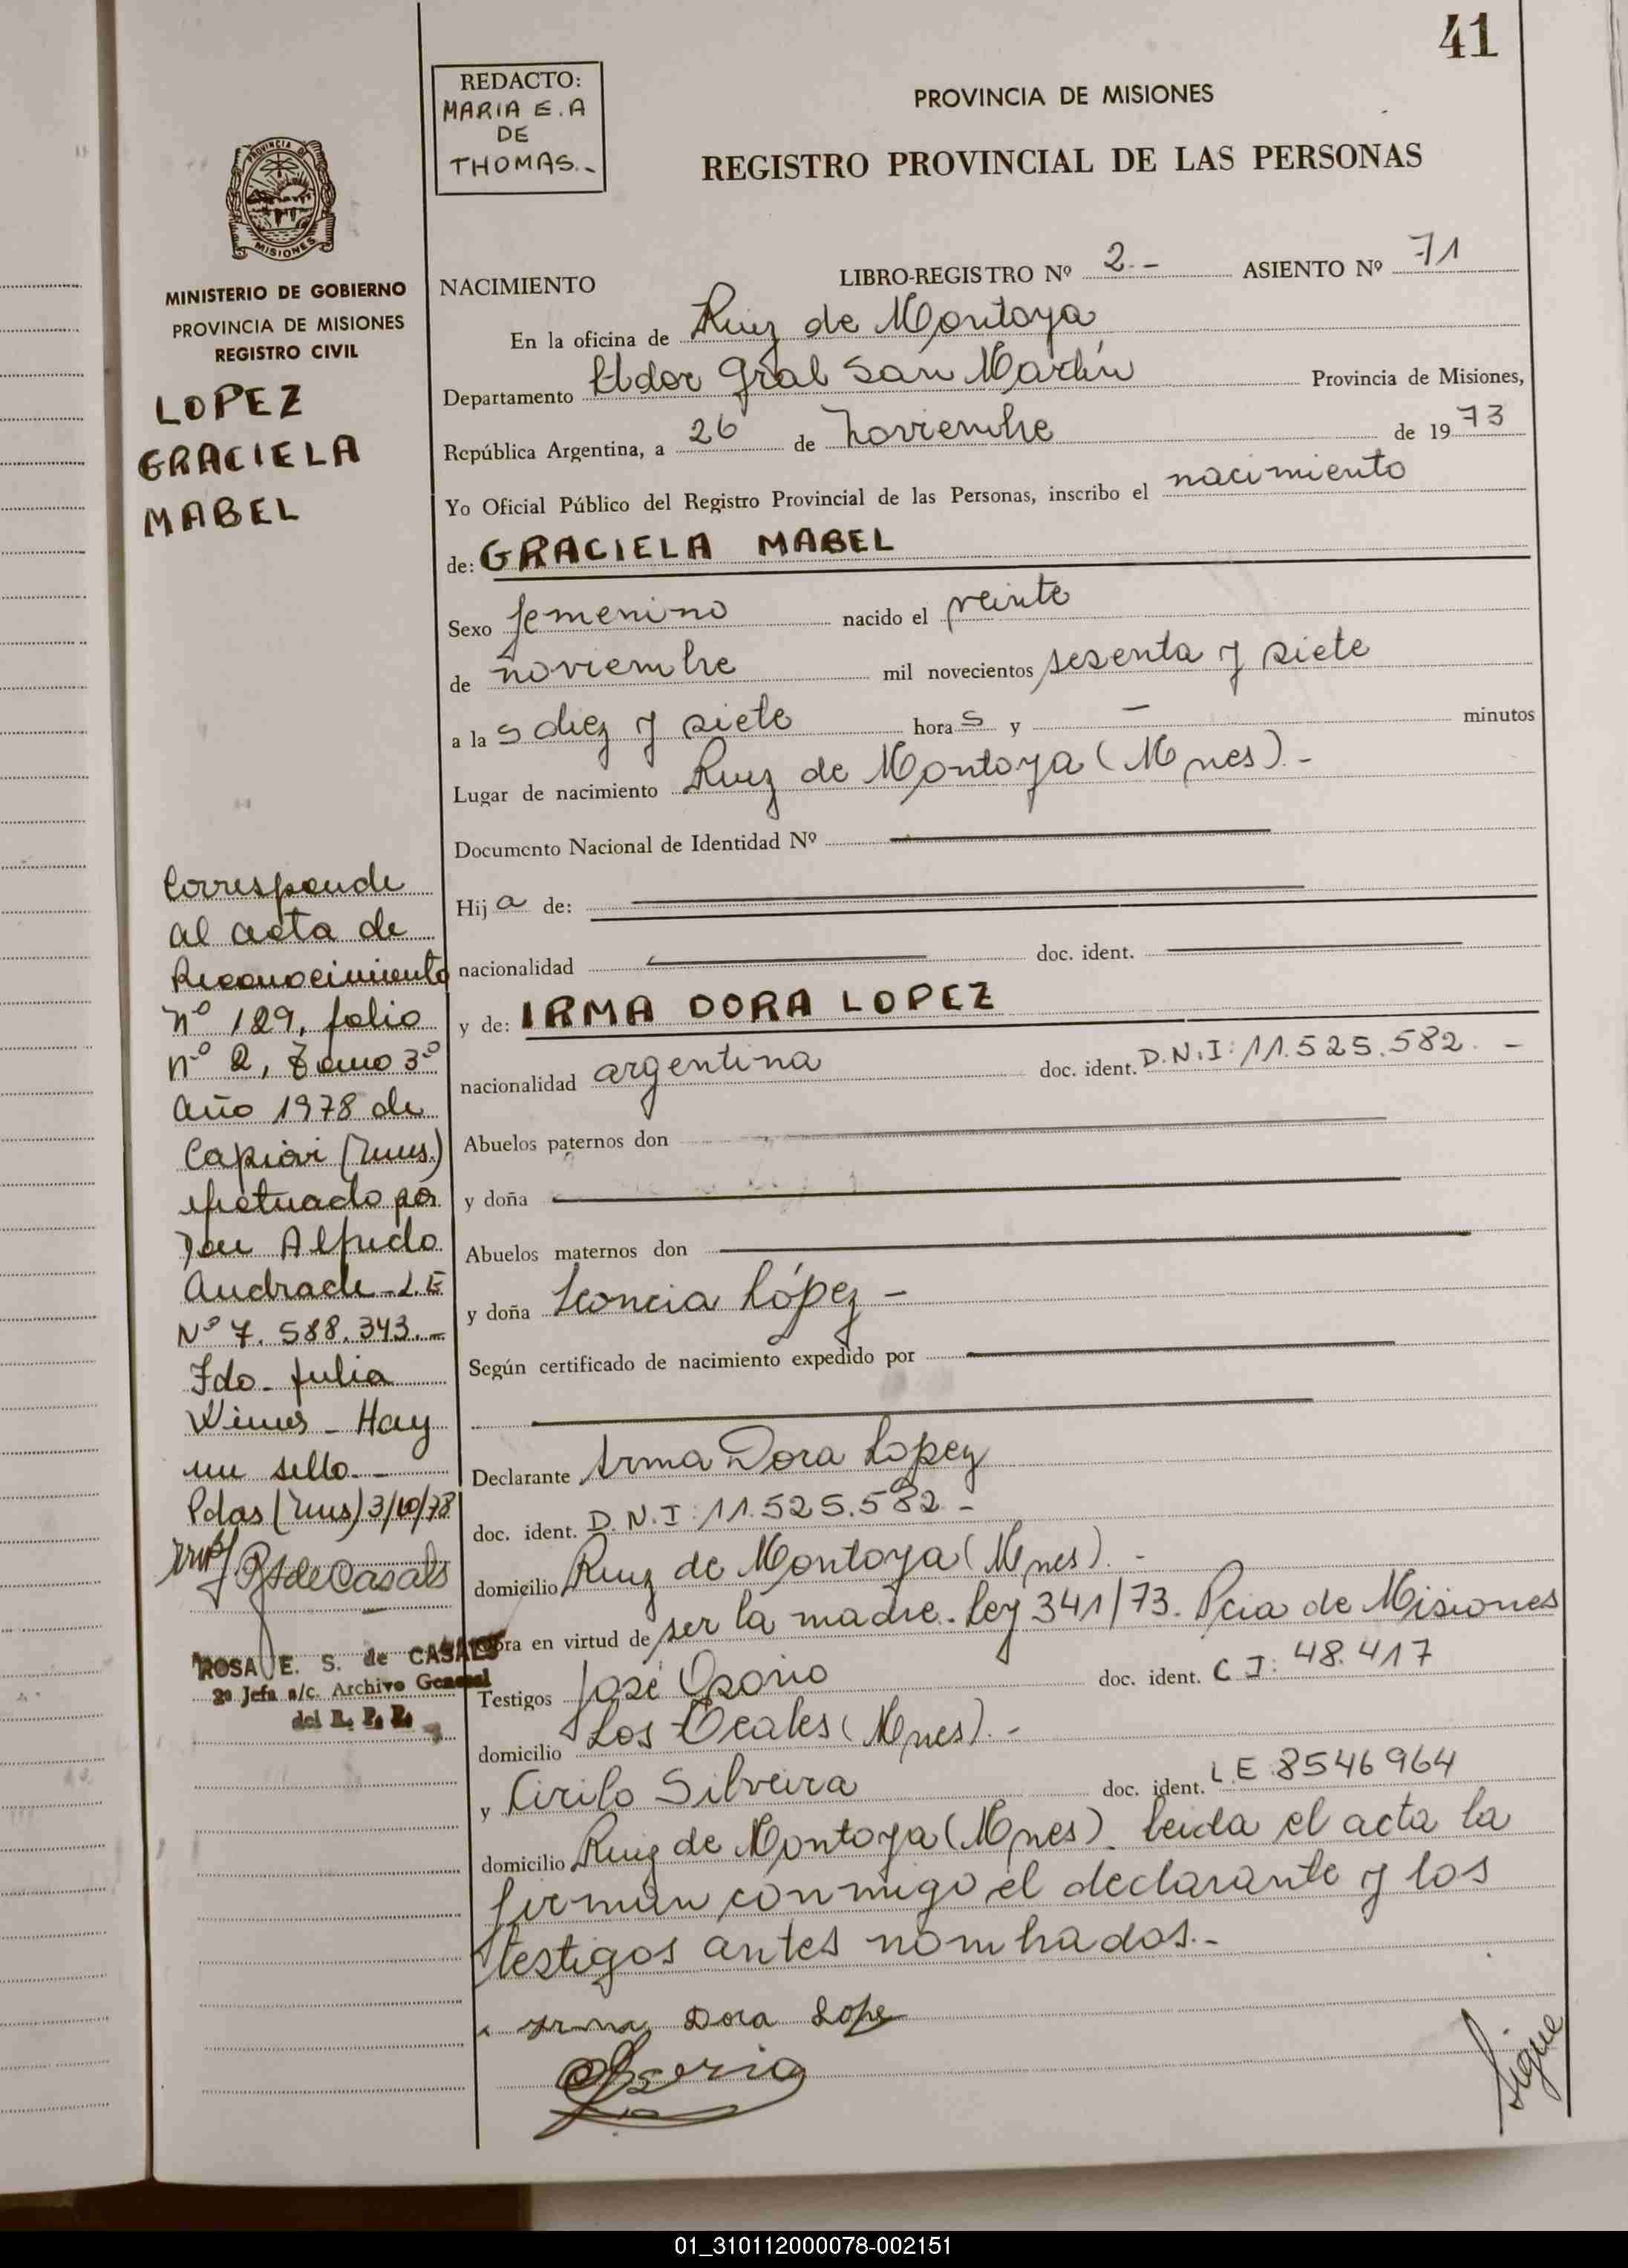 41
REDACTO:
MARIA E. A
DE
THOMAS.-
PROVINCIA DE MISIONES
REGISTRO PROVINCIAL DE LAS PERSONAS
PROVINCIA DE
MISIONES
MINISTERIO DE GOBIERNO
PROVINCIA DE MISIONES
REGISTRO CIVIL
LOPEZ
GRACIELA
MABEL
NACIMIENTO LIBRO-REGISTRO Nº 2.- ASIENTO Nº 71
En la oficina de Ruiz de Montoya
Departamento Ltdor Gral San Martín Provincia de Misiones,
República Argentina, a 26 de noviembre de 1973
Yo Oficial Público del Registro Provincial de las Personas, inscribo el nacimiento
de: GRACIELA MABEL
Sexo femenino nacido el veinte
de noviembre mil novecientos sesenta y siete
a las diez y siete horas y - minutos
Lugar de nacimiento Ruiz de Montoya (Mnes).-
Documento Nacional de Identidad Nº
Hija de:
nacionalidad doc. ident.
y de: IRMA DORA LOPEZ
nacionalidad argentina doc. ident. D.N.I: 11.525.582.-
Abuelos paternos don
y doña
Abuelos maternos don
y doña Leoncia López -
Según certificado de nacimiento expedido por
Declarante Irma Dora Lopez
doc. ident. D.N.I: 11.525.582.-
domicilio Ruiz de Montoya (Mnes).-
obra en virtud de ser la madre. Ley 341/73. Pcia de Misiones
Testigos José Osorio doc. ident. C I: 48.417
domicilio Los Teales (Mnes).-
y Cirilo Silveira doc. ident. L.E 8546964
domicilio Ruiz de Montoya (Mnes). Leida el acta la
firman conmigo el declarante y los
testigos antes nombrados.-
Irma Dora Lope
Osorio
Sigue
Corresponde
al acta de
Reconocimiento
nº 129, folio
nº 2, Tomo 3º
Año 1978 de
Capiovi (mns.)
efectuado por
Don Alfredo
Andrade - L.E
Nº 7.588.343.-
Fdo. Julia
Wimes - Hay
un sello.-
Pdas (mns) 3/10/78
RSdeCasals
ROSA E. S. de CASALS
2ª Jefa a/c. Archivo General
del R. P. P.
01_310112000078-002151